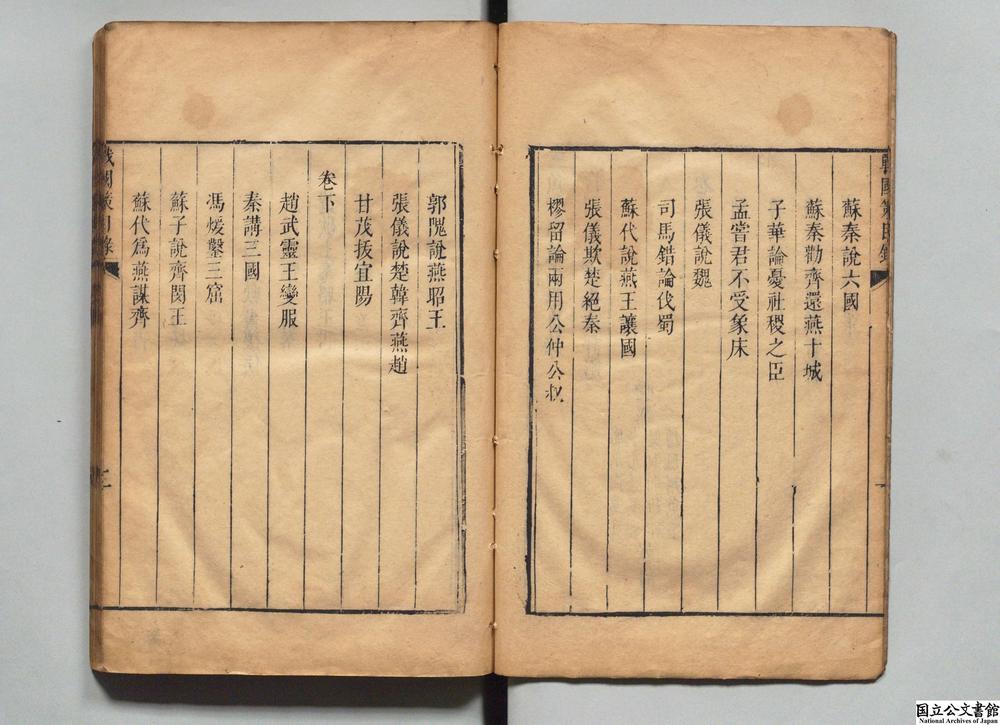 戰國策目錄
蘇秦說六國
蘇秦勸齊還燕十城
子華論憂社稷之臣
孟嘗君不受象床
張儀說魏
司馬錯論伐蜀
蘇代說燕王讓國
張儀欺楚絕秦
樛留論兩用公仲公叔
郭隗說燕昭王
張儀說楚韓齊燕趙
甘茂拔宜陽
卷下
趙武靈王變服
秦講三國
馮煖鑿三窟
蘇子說齊閔王
蘇代爲燕謀齊
戰國策目錄
国立公文書館
National Archives of Japan